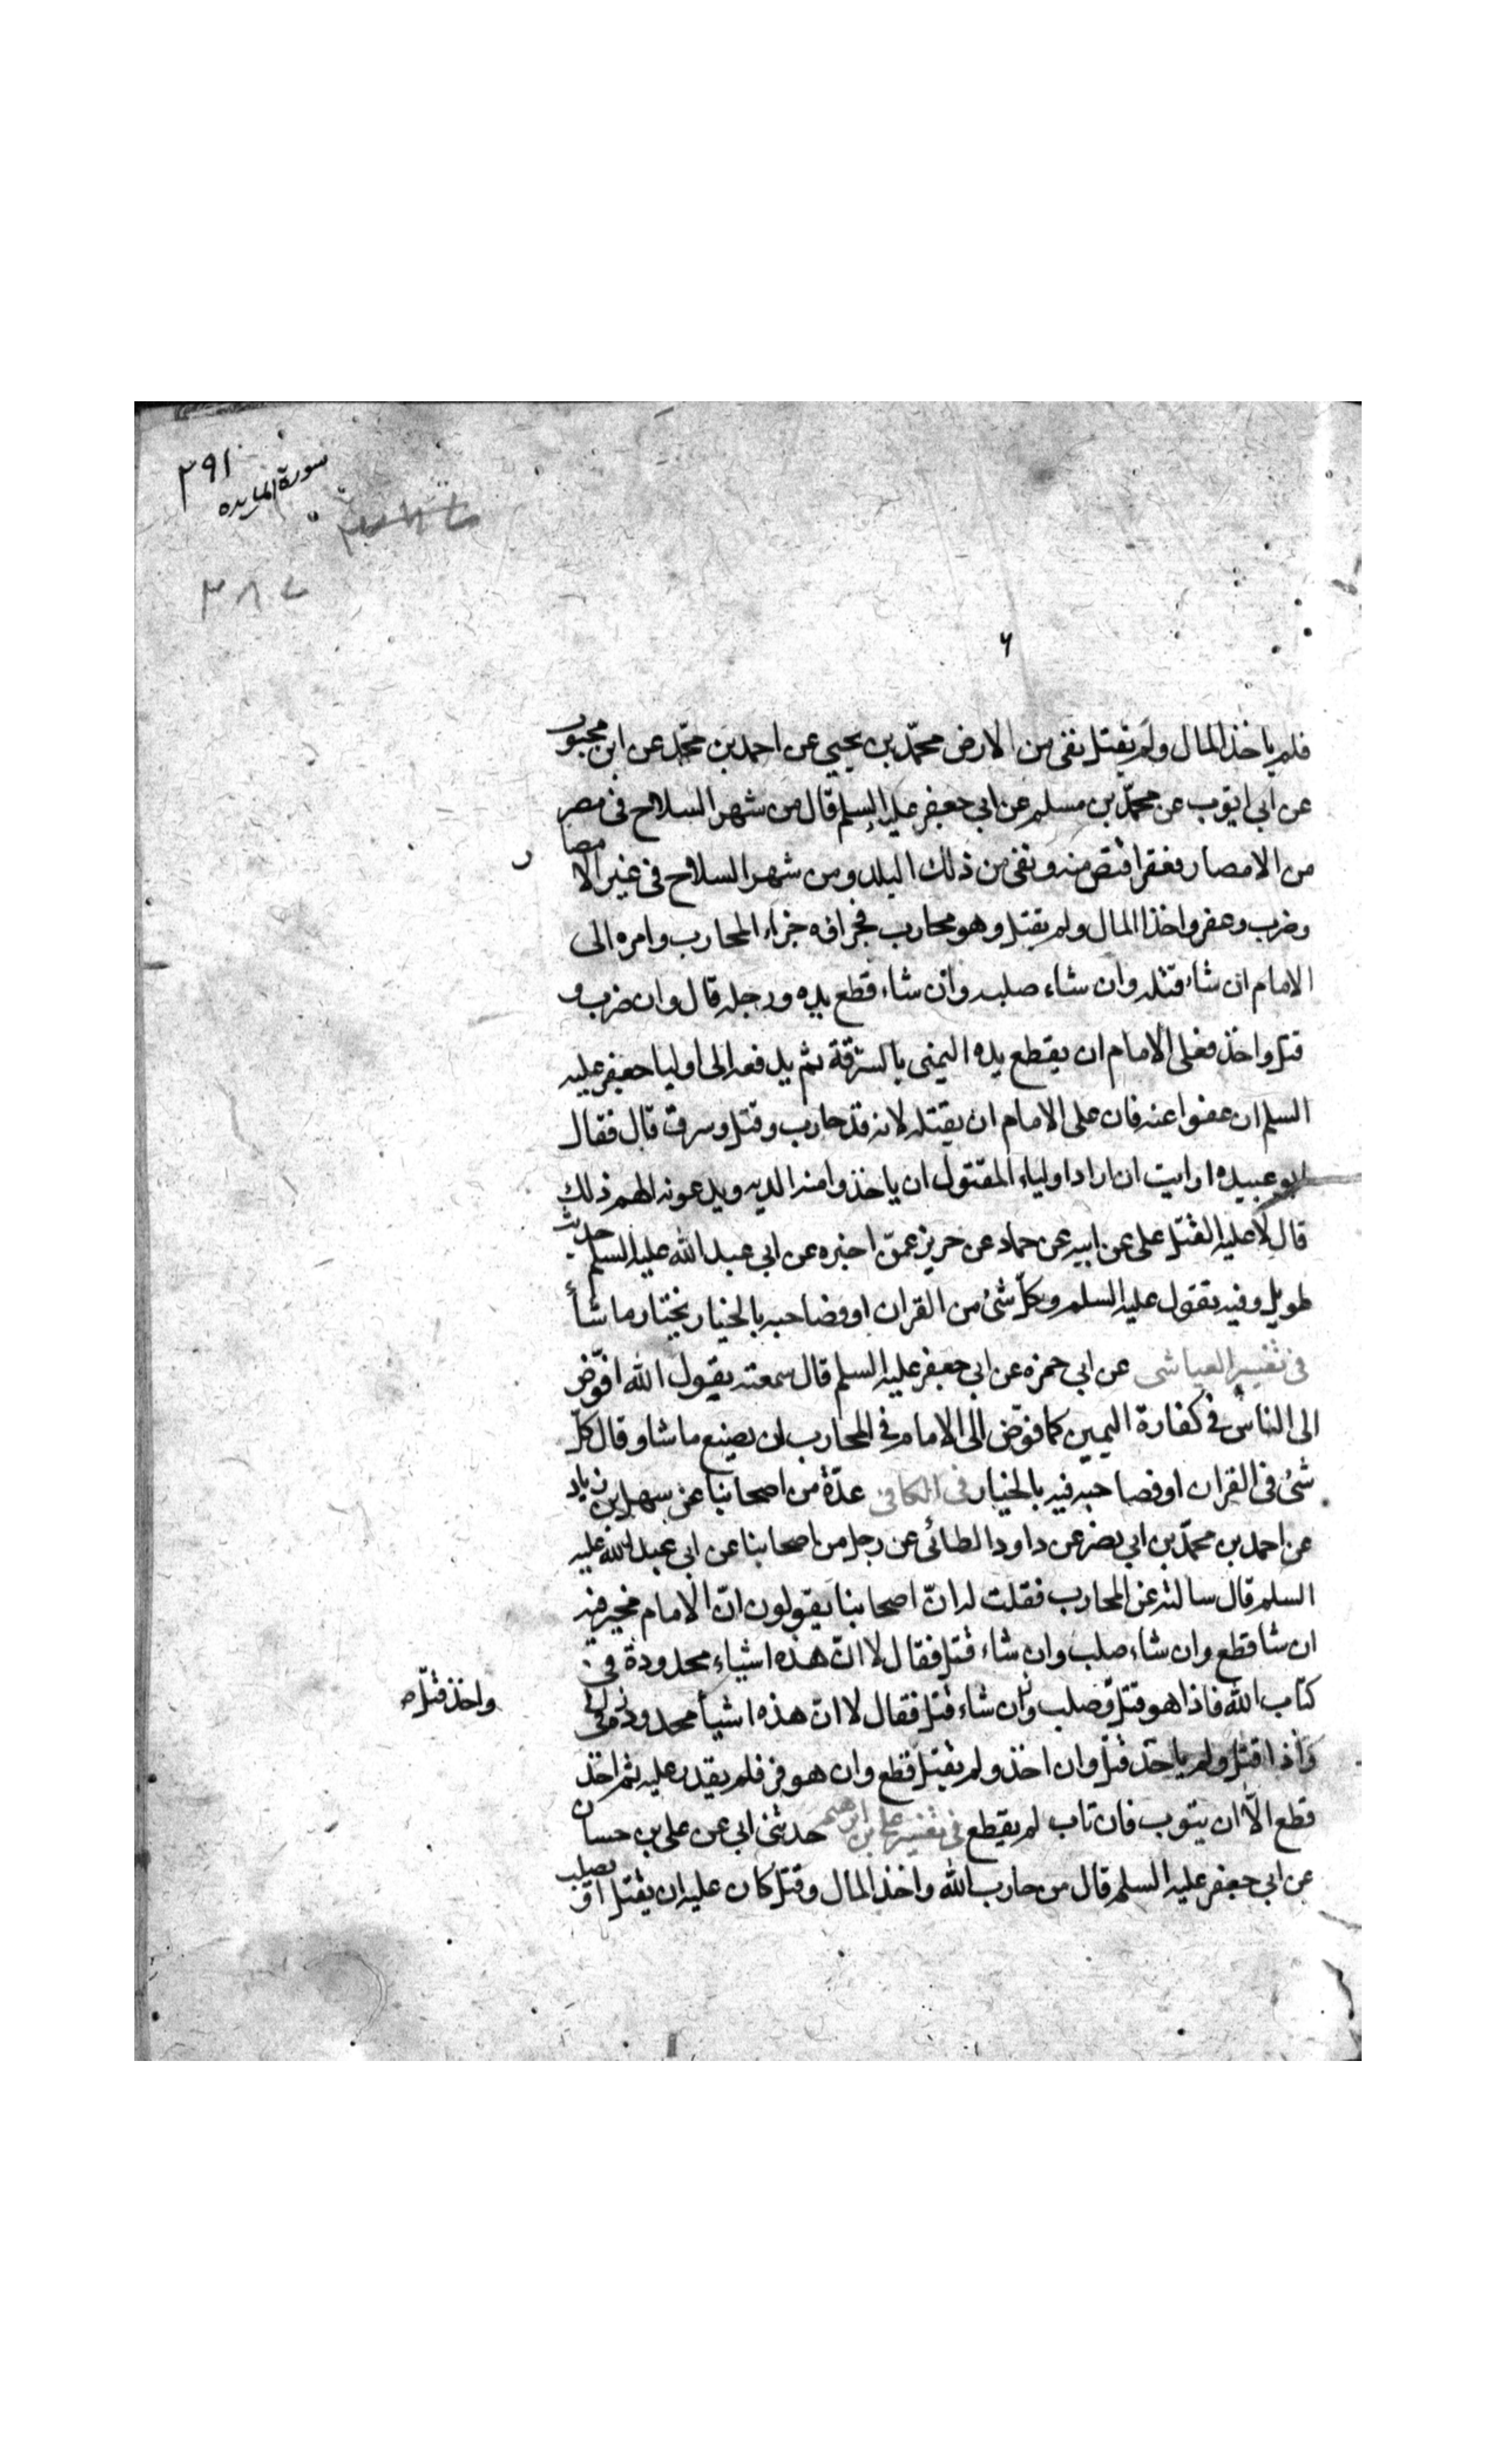 ٣٩١
سورة المايده
٣٨٢
٦
فلم ياخذ المال ولم يقتل نفى من الارض محمّد بن يحيى عن احمد بن محمّد عن ابن محبوب
عن ابى ايّوب عن محمّد بن مسلم عن ابي جعفر عليه السلم قال من شهر السلاح فى مصر
من الامصار فعقر اقتصّ منه ونفى من ذلك البلد ومن شهر السلاح فى غير الامصار
وضرب وعقر واخذ المال ولم يقتل وهو محارب فجزاؤه جزاء المحارب وامره الى
الامام ان شاء قتله وان شاء صلبه وان شاء قطع يده ورجله قال وان ضرب و
قتل واخذ فعلى الامام ان يقطع يده اليمنى بالسّرقة ثم يدفعه الى اوليا جعفر عليه
السلم ان عفوا عنه فان على الامام ان يقتله لانه قد حارب وقتل وسرق قال فقال
ابو عبيده ارايت ان اراد اولياء المقتول ان ياخذوا منه الديه ويدعونه لهم ذلك
قال لا عليه القتل على عن ابيه عن حماد عن حريز عمّن اخبره عن ابى عبد الله عليه السلم حديث
طويل وفيه يقول عليه السلم وكلّ شئ من القران او فصاحبه بالخيار يختار ما شأ
فى تفسير العياشى عن ابي حمزه عن ابي جعفر عليه السلم قال سمعته يقول الله افوّض
الى الناس فى كفارة اليمين كما فوّض الى الامام فى المحارب ان يصنع ما شا وقال كلّ
شئ فى القران او فصاحبه فيه بالخيار فى الكافى عدّة من اصحابنا عن سهل بن زياد
عن احمد بن محمّد بن ابي نصر عن داود الطائى عن رجل من اصحابنا عن ابى عبد الله عليه
السلم قال سالته عن المحارب فقلت له انّ اصحابنا يقولون انّ الامام مخير فيه
ان شا قطع وان شاء صلب وان شاء قتل فقال لا انّ هذه اشياء محدودة فى
كتاب الله فاذا هو قتل وصلب وان شاء قتل فقال لا انّ هذه اشيأ محدوده
واخذ قتل
واذا قتل ولم ياخذ قتل وان اخذ ولم يقتل قطع وان هو فر فلم يقدر عليه ثم اخذ
قطع الّا ان يتوب فان تاب لم يقطع فى تفسير على بن ابرهيم حدثنى ابي عن على بن حسان
عن ابي جعفر عليه السلم قال من حارب الله واخذ المال وقتل كان عليه ان يقتل او يصلب